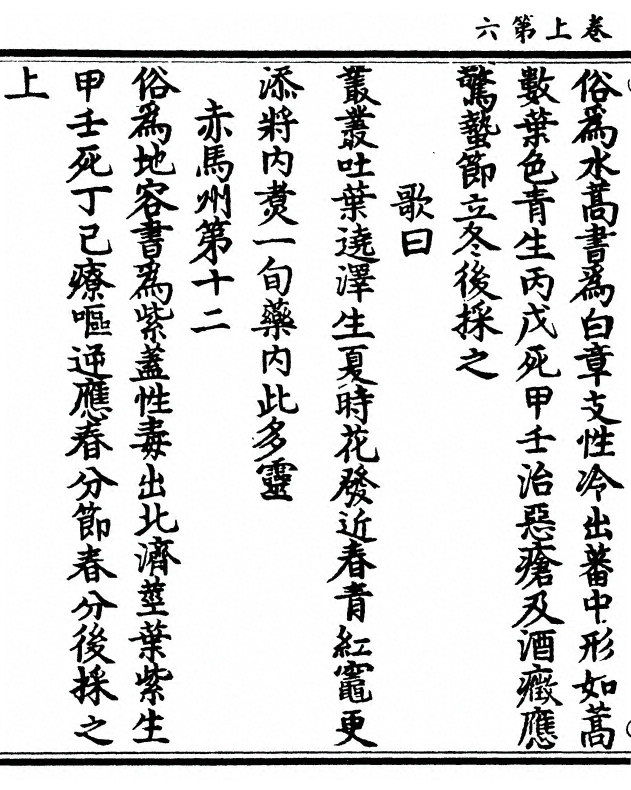 卷上第六
俗爲水蒿書爲白章支性冷出蕃中形如蒿
數葉色青生丙戊死甲壬治惡瘡及酒癥應
驚蟄節立冬後採之
歌曰
叢叢吐葉遶澤生夏時花發近春青紅竈更
添將內煑一旬藥內此多靈
赤馬州第十二
俗爲地容書爲紫蓋性毒出北濟莖葉紫生
甲壬死丁己療嘔逆應春分節春分後採之
上